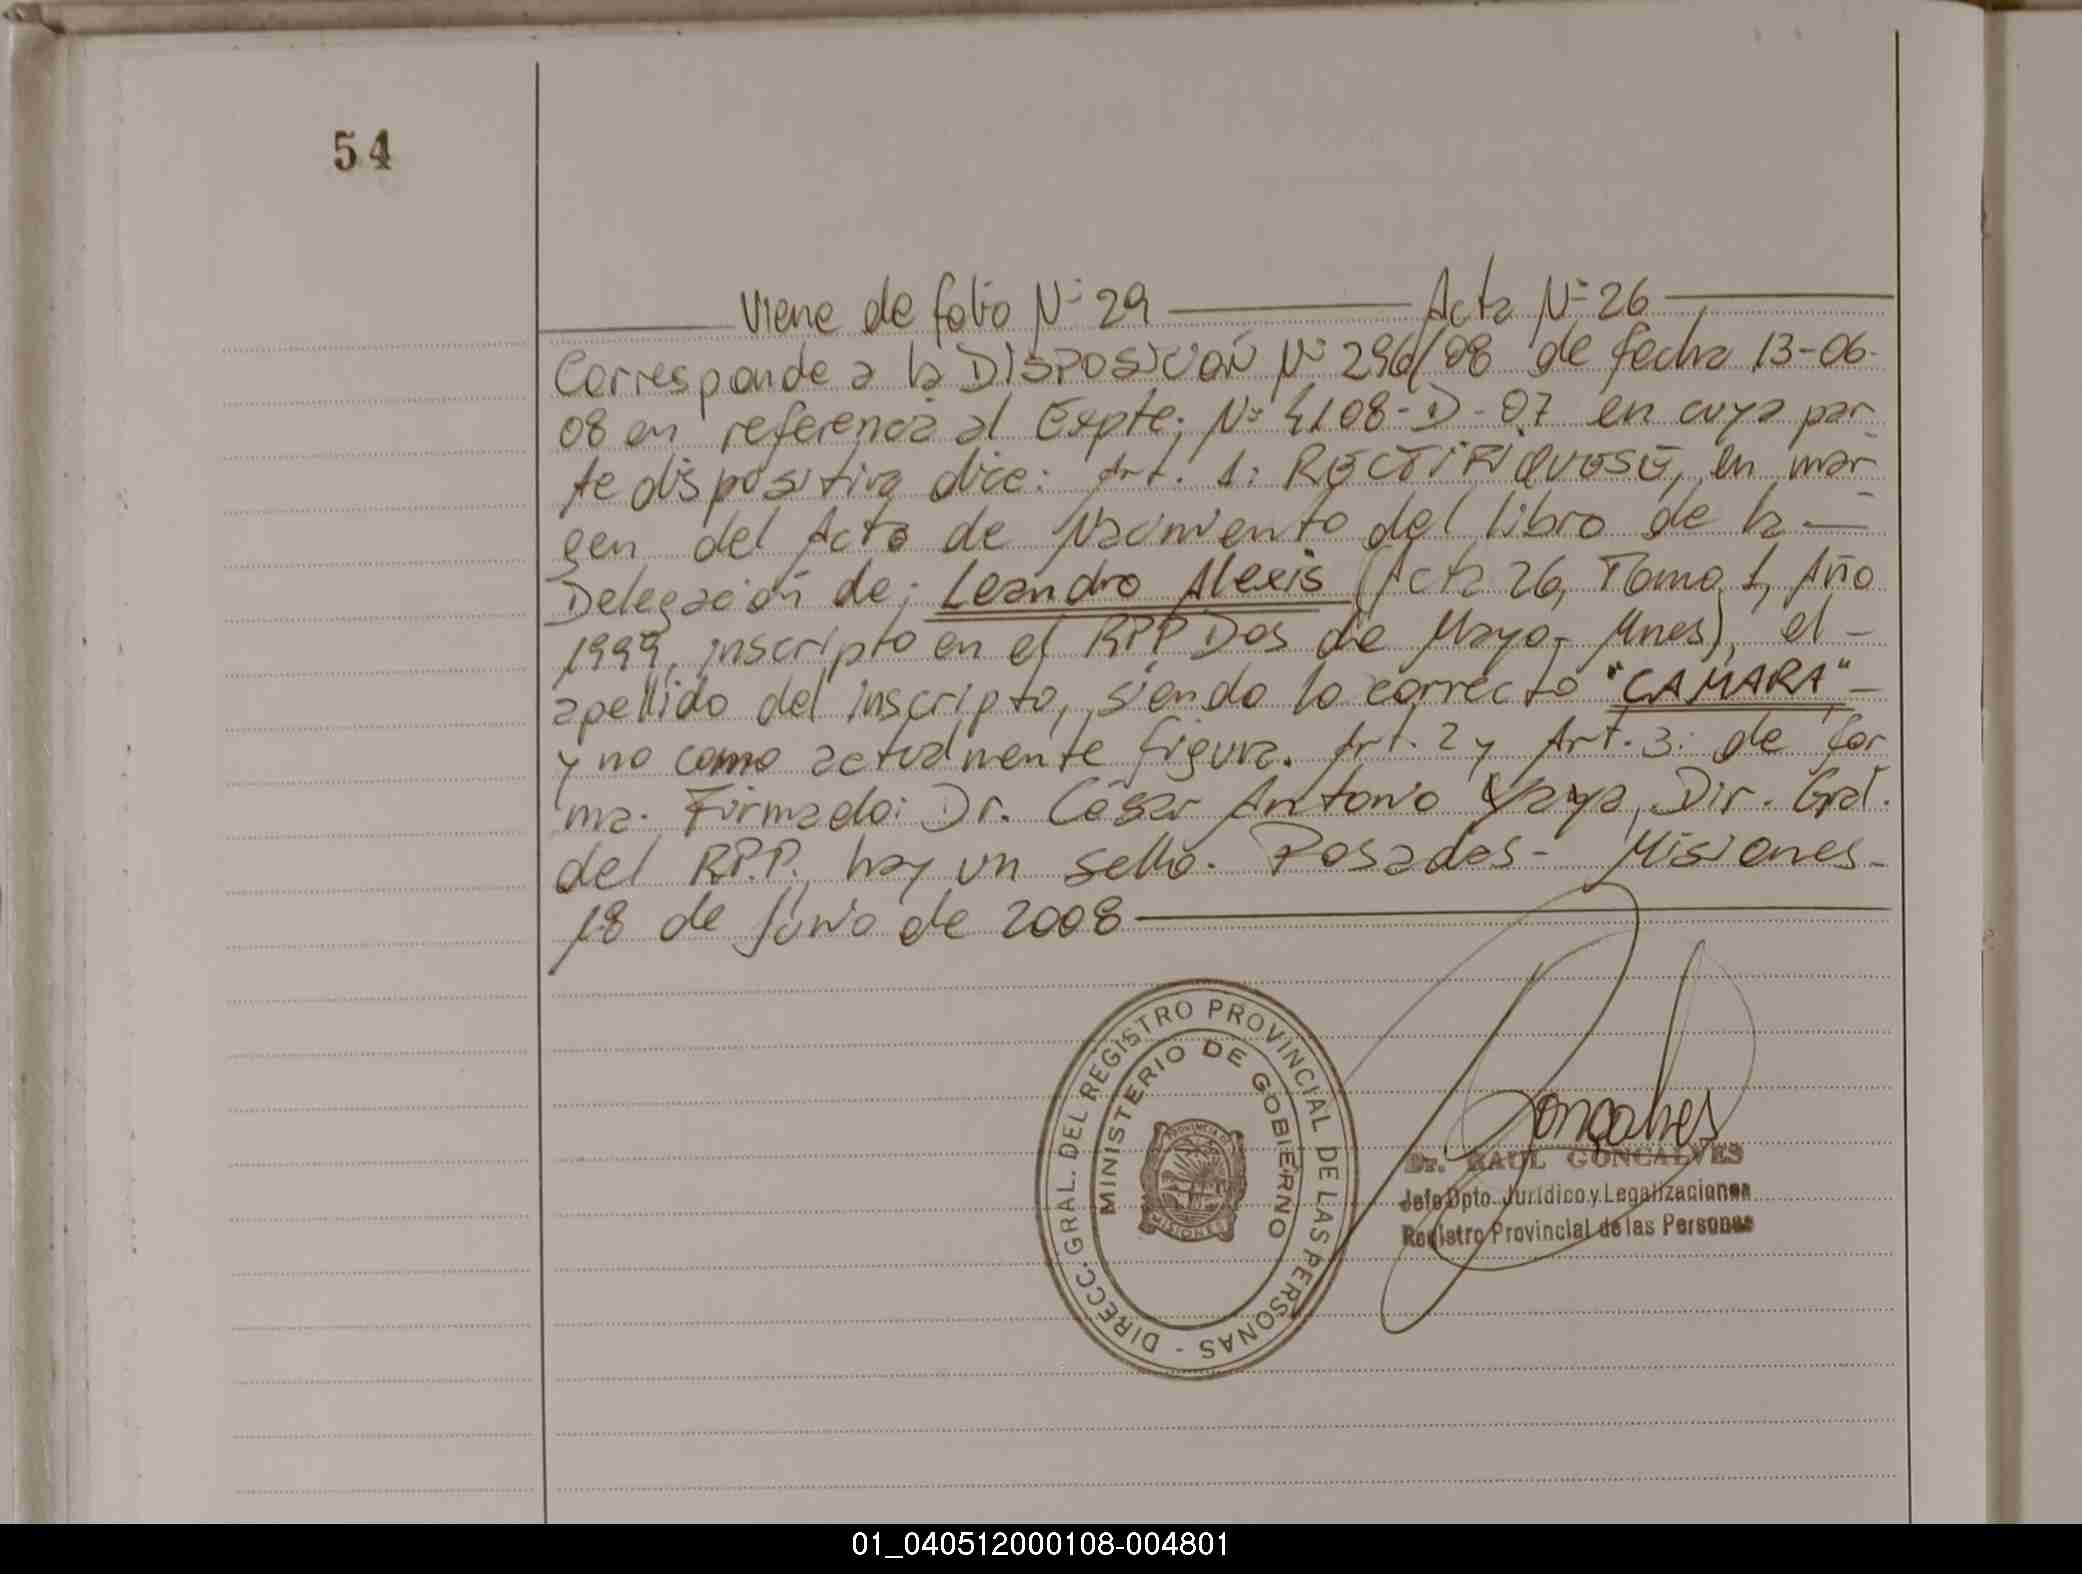 54
Viene de folio Nº 29 Acta Nº 26
Corresponde a la DISPOSICIÓN Nº 296/08 de fecha 13-06-
08 en referencia al Expte; Nº 4108-D-07 en cuya par
te dispositiva dice: Art. 1: RECTIFIQUESE, en mar
gen del Acta de Nacimiento del libro de la —
Delegación de; Leandro Alexis (Acta 26, Tomo 1, Año
1999, inscripto en el RPP Dos de Mayo- Mnes), el -
apellido del inscripto, siendo lo correcto "CAMARA" -
y no como actualmente figura. Art. 2 y Art. 3: de for
ma. Firmado: Dr. César Antonio Dir. Gral.
del R.P.P. hay un sello. Posadas- Misiones-
18 de Junio de 2008
DIRECC. GRAL. DEL REGISTRO PROVINCIAL DE LAS PERSONAS -
MINISTERIO DE GOBIERNO
PROVINCIA DE
MISIONES
Goncalves
Dr. RAUL GONCALVES
Jefe Dpto. Jurídico y Legalizaciones
Registro Provincial de las Personas
01_040512000108-004801